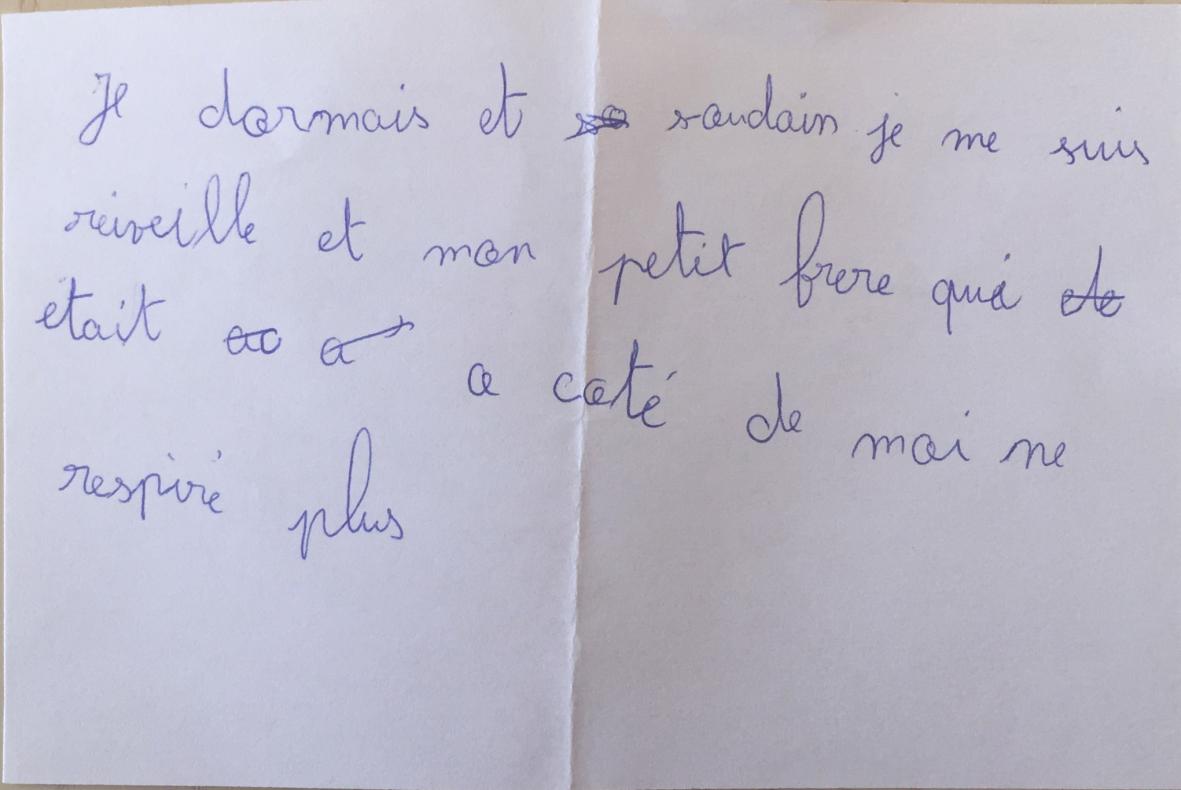 Je dormais et soudain je me suis
réveille et mon petit frere qui
etait a coté de moi ne
respiré plus